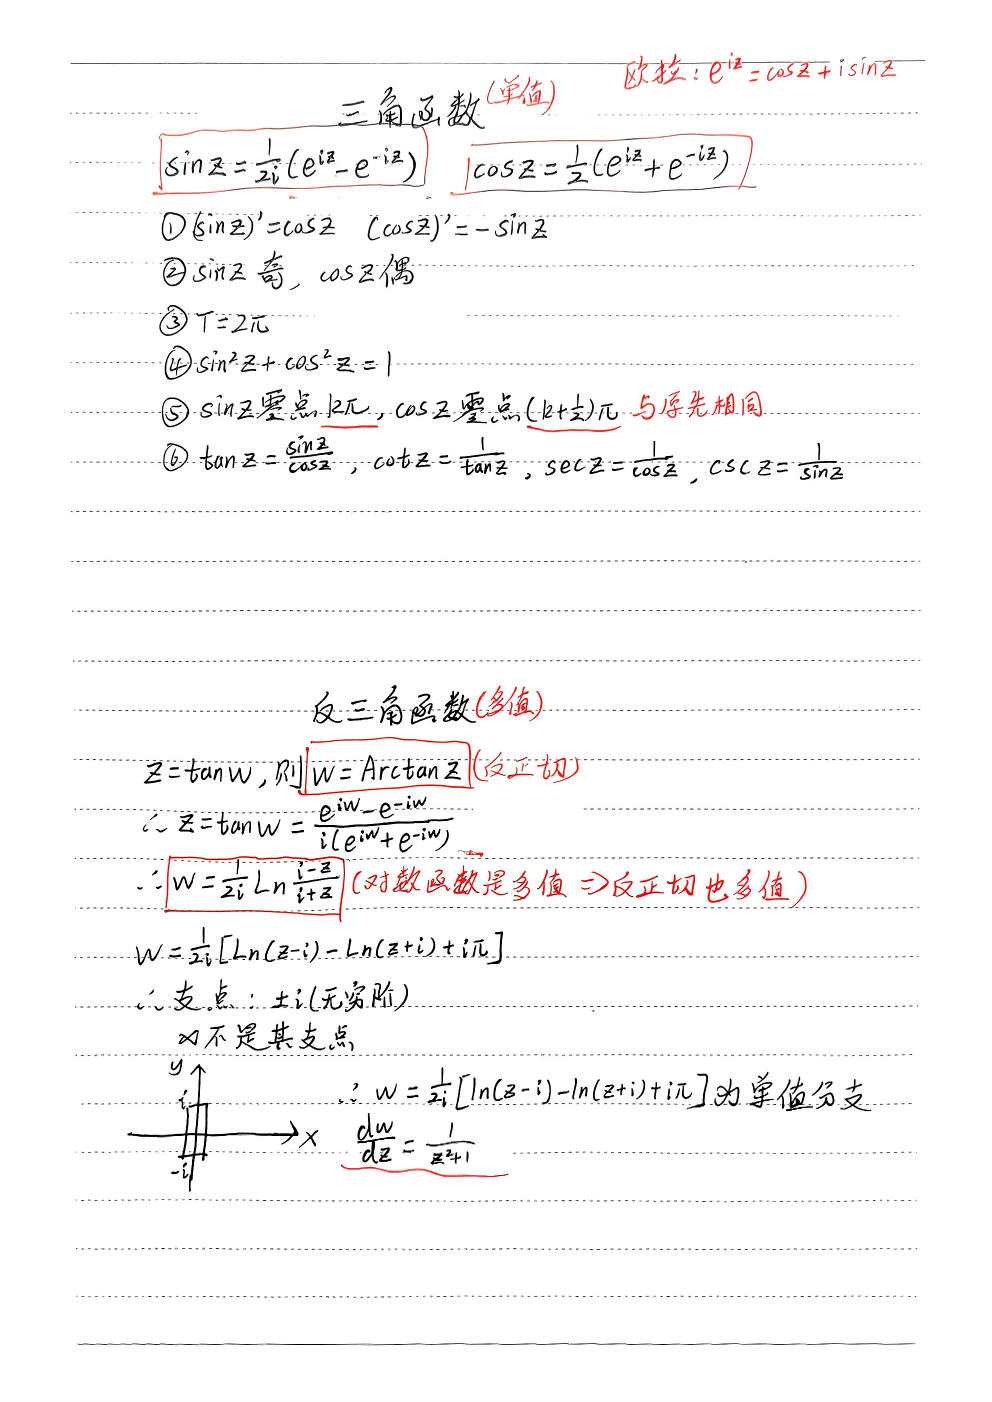 欧拉：e^{iz}=cosz+isinz
三角函数(单值)
sinz=\frac{1}{2i}(e^{iz}-e^{-iz}) cosz=\frac{1}{2}(e^{iz}+e^{-iz})
①(sinz)'=cosz (cosz)'=-sinz
②sinz奇，cosz偶
③T=2π
④sin²z+cos²z=1
⑤sinz零点kπ，cosz零点(k+\frac{1}{2})π 与原先相同
⑥tanz=\frac{sinz}{cosz}，cotz=\frac{1}{tanz}，secz=\frac{1}{cosz}，cscz=\frac{1}{sinz}
反三角函数(多值)
z=tanw，则w=Arctanz(反正切)
∴z=tanw=\frac{e^{iw}-e^{-iw}}{i(e^{iw}+e^{-iw})}
∴w=\frac{1}{2i}Ln\frac{i-z}{i+z}(对数函数是多值⇒反正切也多值)
w=\frac{1}{2i}[Ln(z-i)-Ln(z+i)+iπ]
∴支点：±i(无穷阶)
∞不是其支点
y
i
-i
x
∴w=\frac{1}{2i}[ln(z-i)-ln(z+i)+iπ]为单值分支
\frac{dw}{dz}=\frac{1}{z²+1}